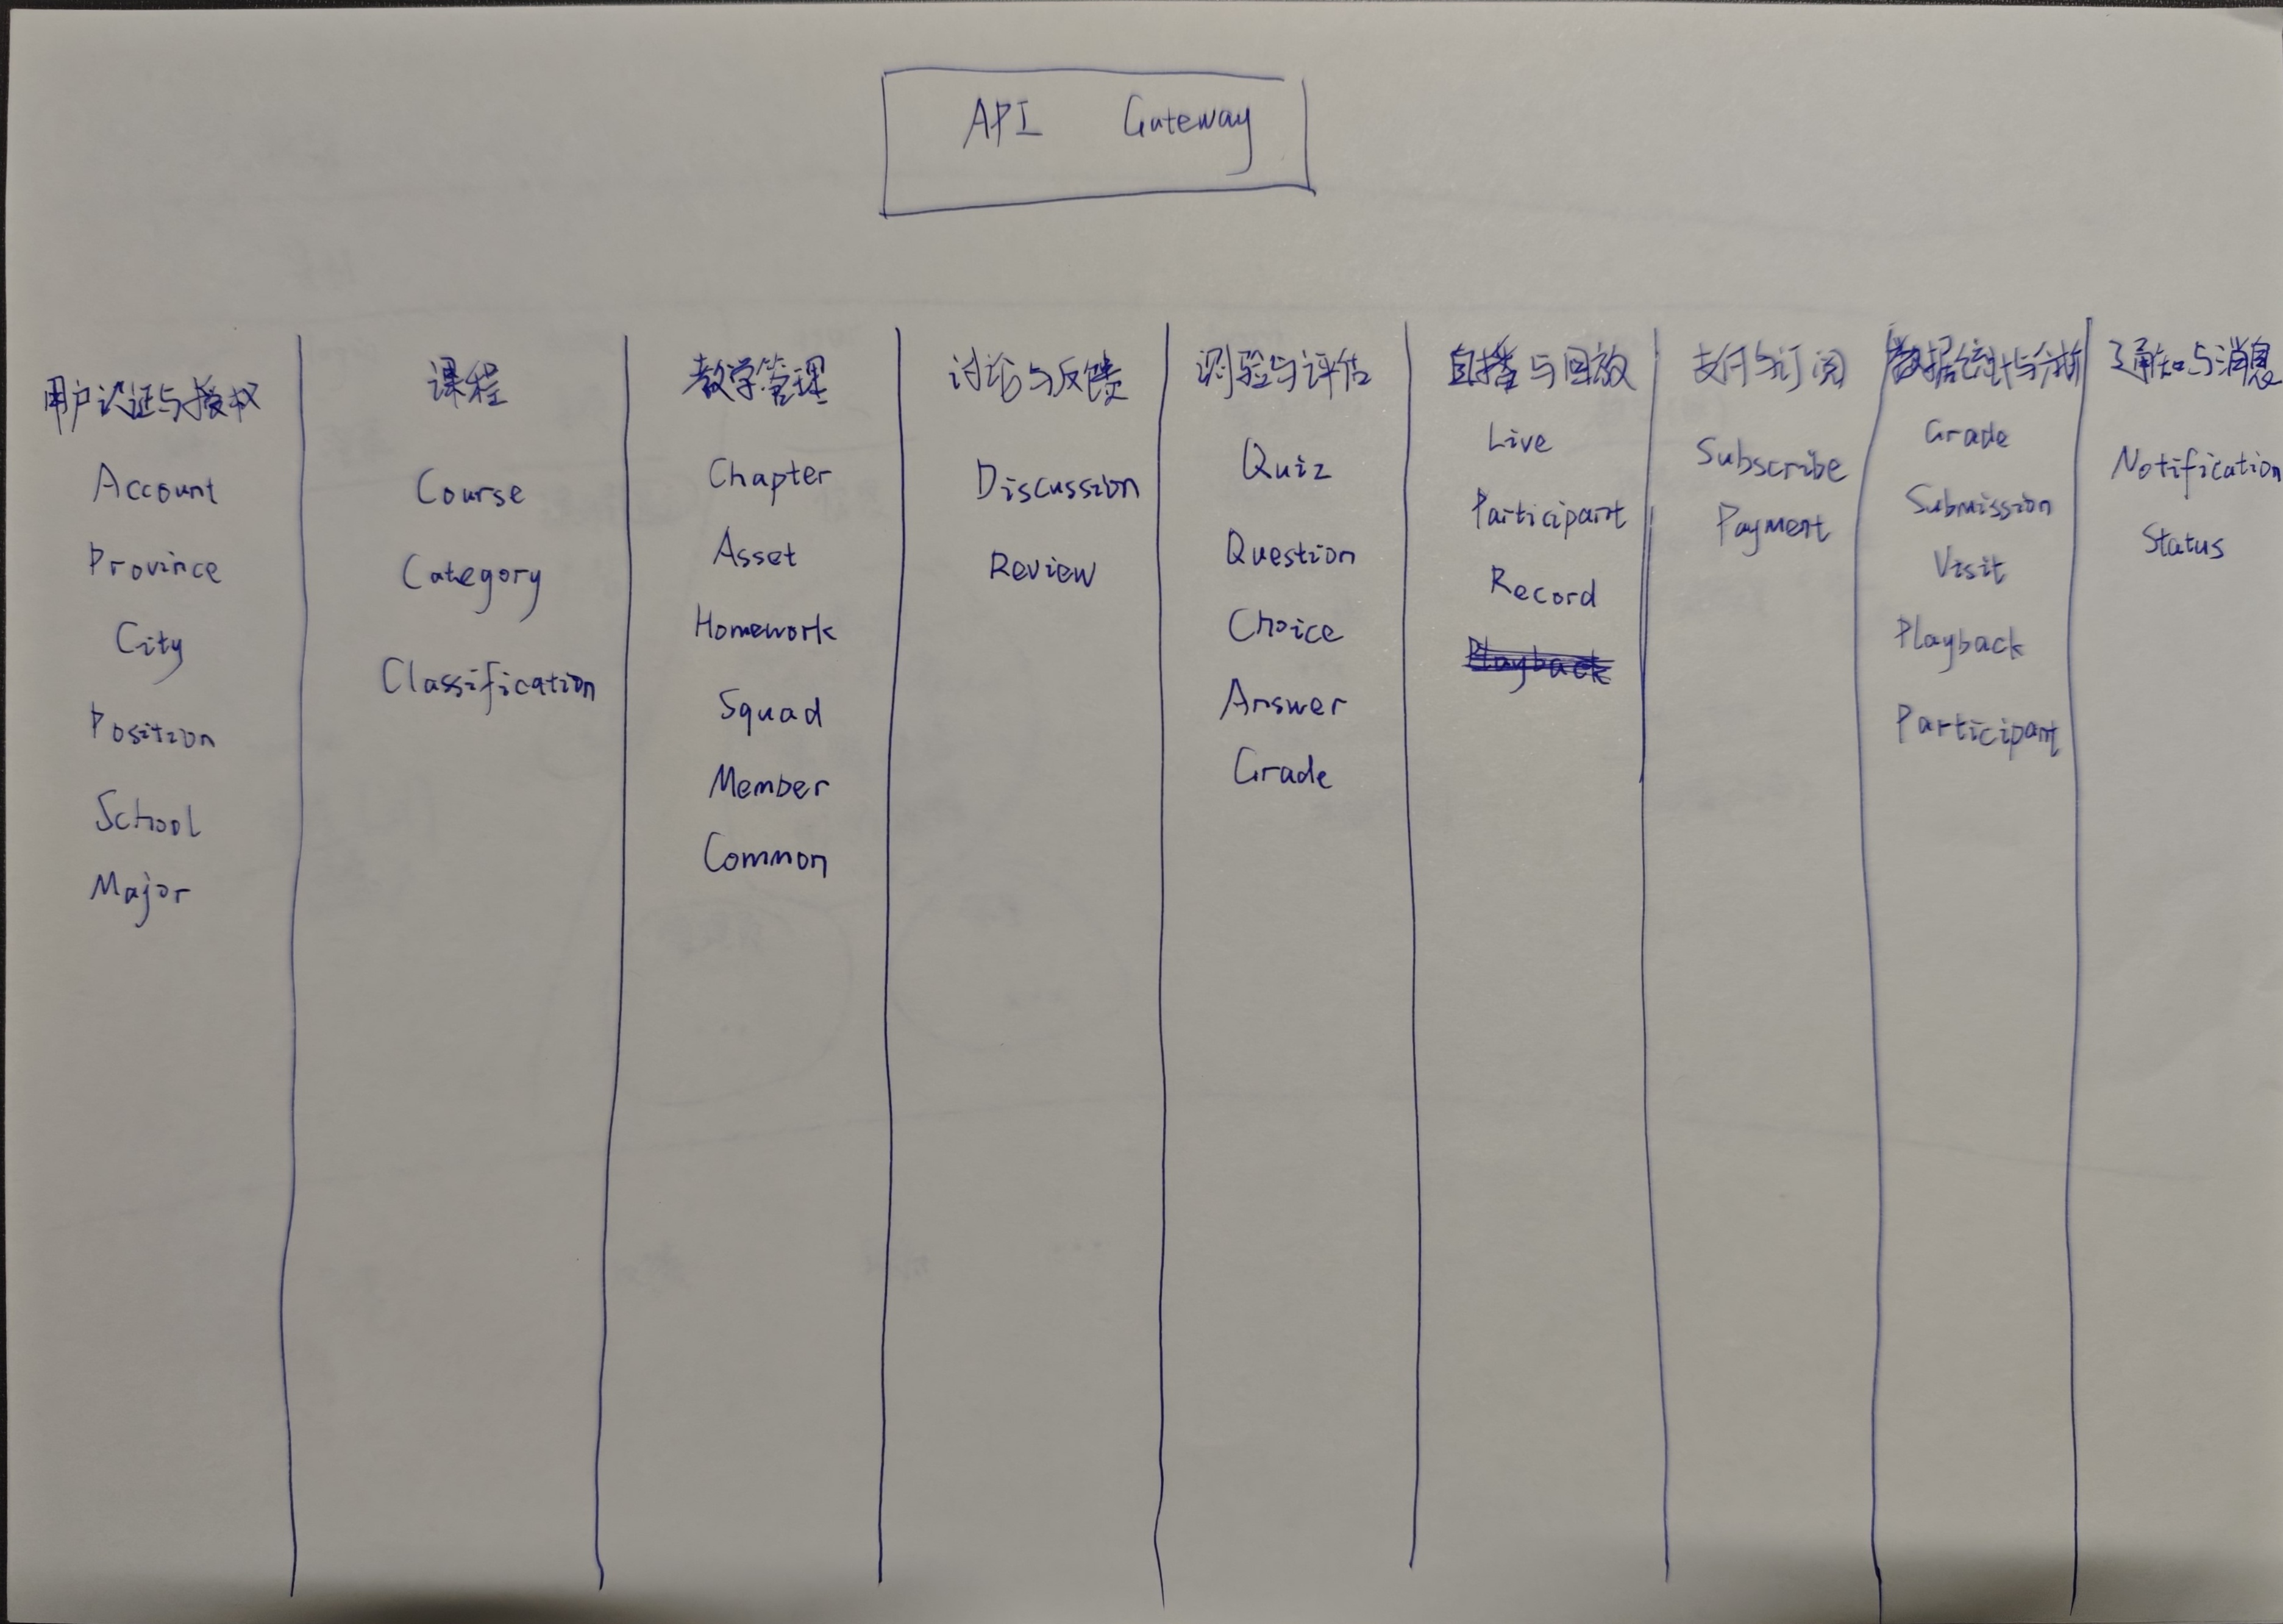 API Gateway
用户认证与授权
Account
Province
City
Position
School
Major
课程
Course
Category
Classification
教学管理
Chapter
Asset
Homework
Squad
Member
Common
讨论与反馈
Discussion
Review
测验与评估
Quiz
Question
Choice
Answer
Grade
直播与回放
Live
Participant
Record
Playback
支付与订阅
Subscribe
Payment
数据统计与分析
Grade
Submission
Visit
Playback
Participant
通知与消息
Notification
Status